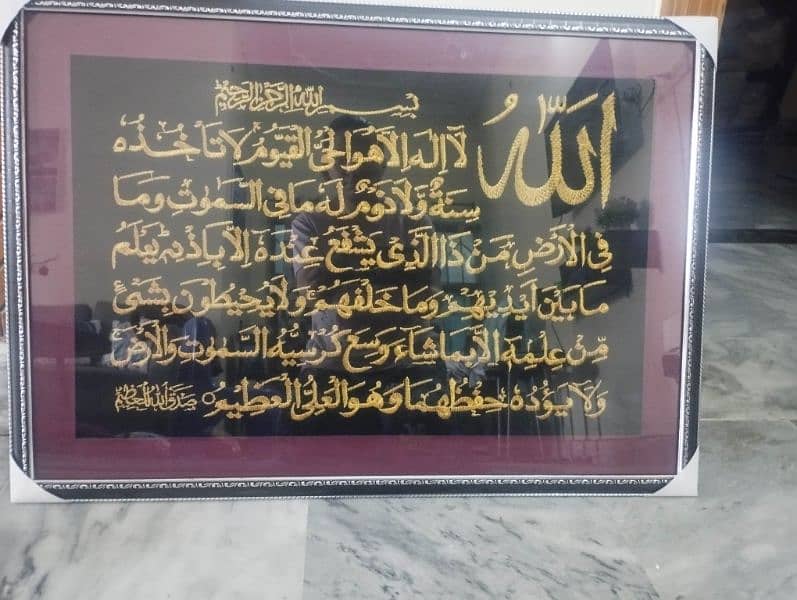 بِسْمِ اللهِ الرَّحْمٰنِ الرَّحِيْمِ
اَللّٰهُ لَا إِلٰهَ اِلَّا هُوَ الْحَيُّ الْقَيُّوْمُ لَا تَأْخُذُهٗ
سِنَةٌ وَّلَا نَوْمٌ لَهٗ مَا فِي السَّمٰوٰتِ وَمَا
فِي الْاَرْضِ مَنْ ذَا الَّذِيْ يَشْفَعُ عِنْدَهٗ اِلَّا بِاِذْنِهٖ يَعْلَمُ
مَا بَيْنَ اَيْدِيْهِمْ وَمَا خَلْفَهُمْ وَلَا يُحِيْطُوْنَ بِشَيْءٍ
مِّنْ عِلْمِهٖ اِلَّا بِمَا شَآءَ وَسِعَ كُرْسِيُّهُ السَّمٰوٰتِ وَالْاَرْضَ
وَلَا يَؤُدُهٗ حِفْظُهُمَا وَهُوَ الْعَلِيُّ الْعَظِيْمُ ○ صَدَقَ اللهُ الْعَظِيْمُ